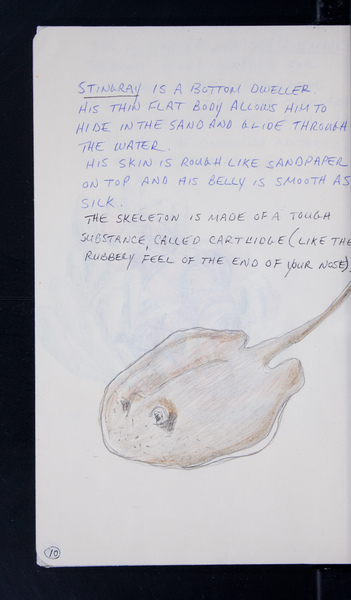 STINGRAY IS A BOTTOM DWELLER.
HIS THIN FLAT BODY ALLOWS HIM TO
HIDE IN THE SAND AND GLIDE THROUGH
THE WATER.
HIS SKIN IS ROUGH LIKE SANDPAPER
ON TOP AND HIS BELLY IS SMOOTH AS
SILK.
THE SKELETON IS MADE OF A TOUGH
SUBSTANCE, CALLED CARTLIDGE (LIKE THE
RUBBERY FEEL OF THE END OF YOUR NOSE)
10